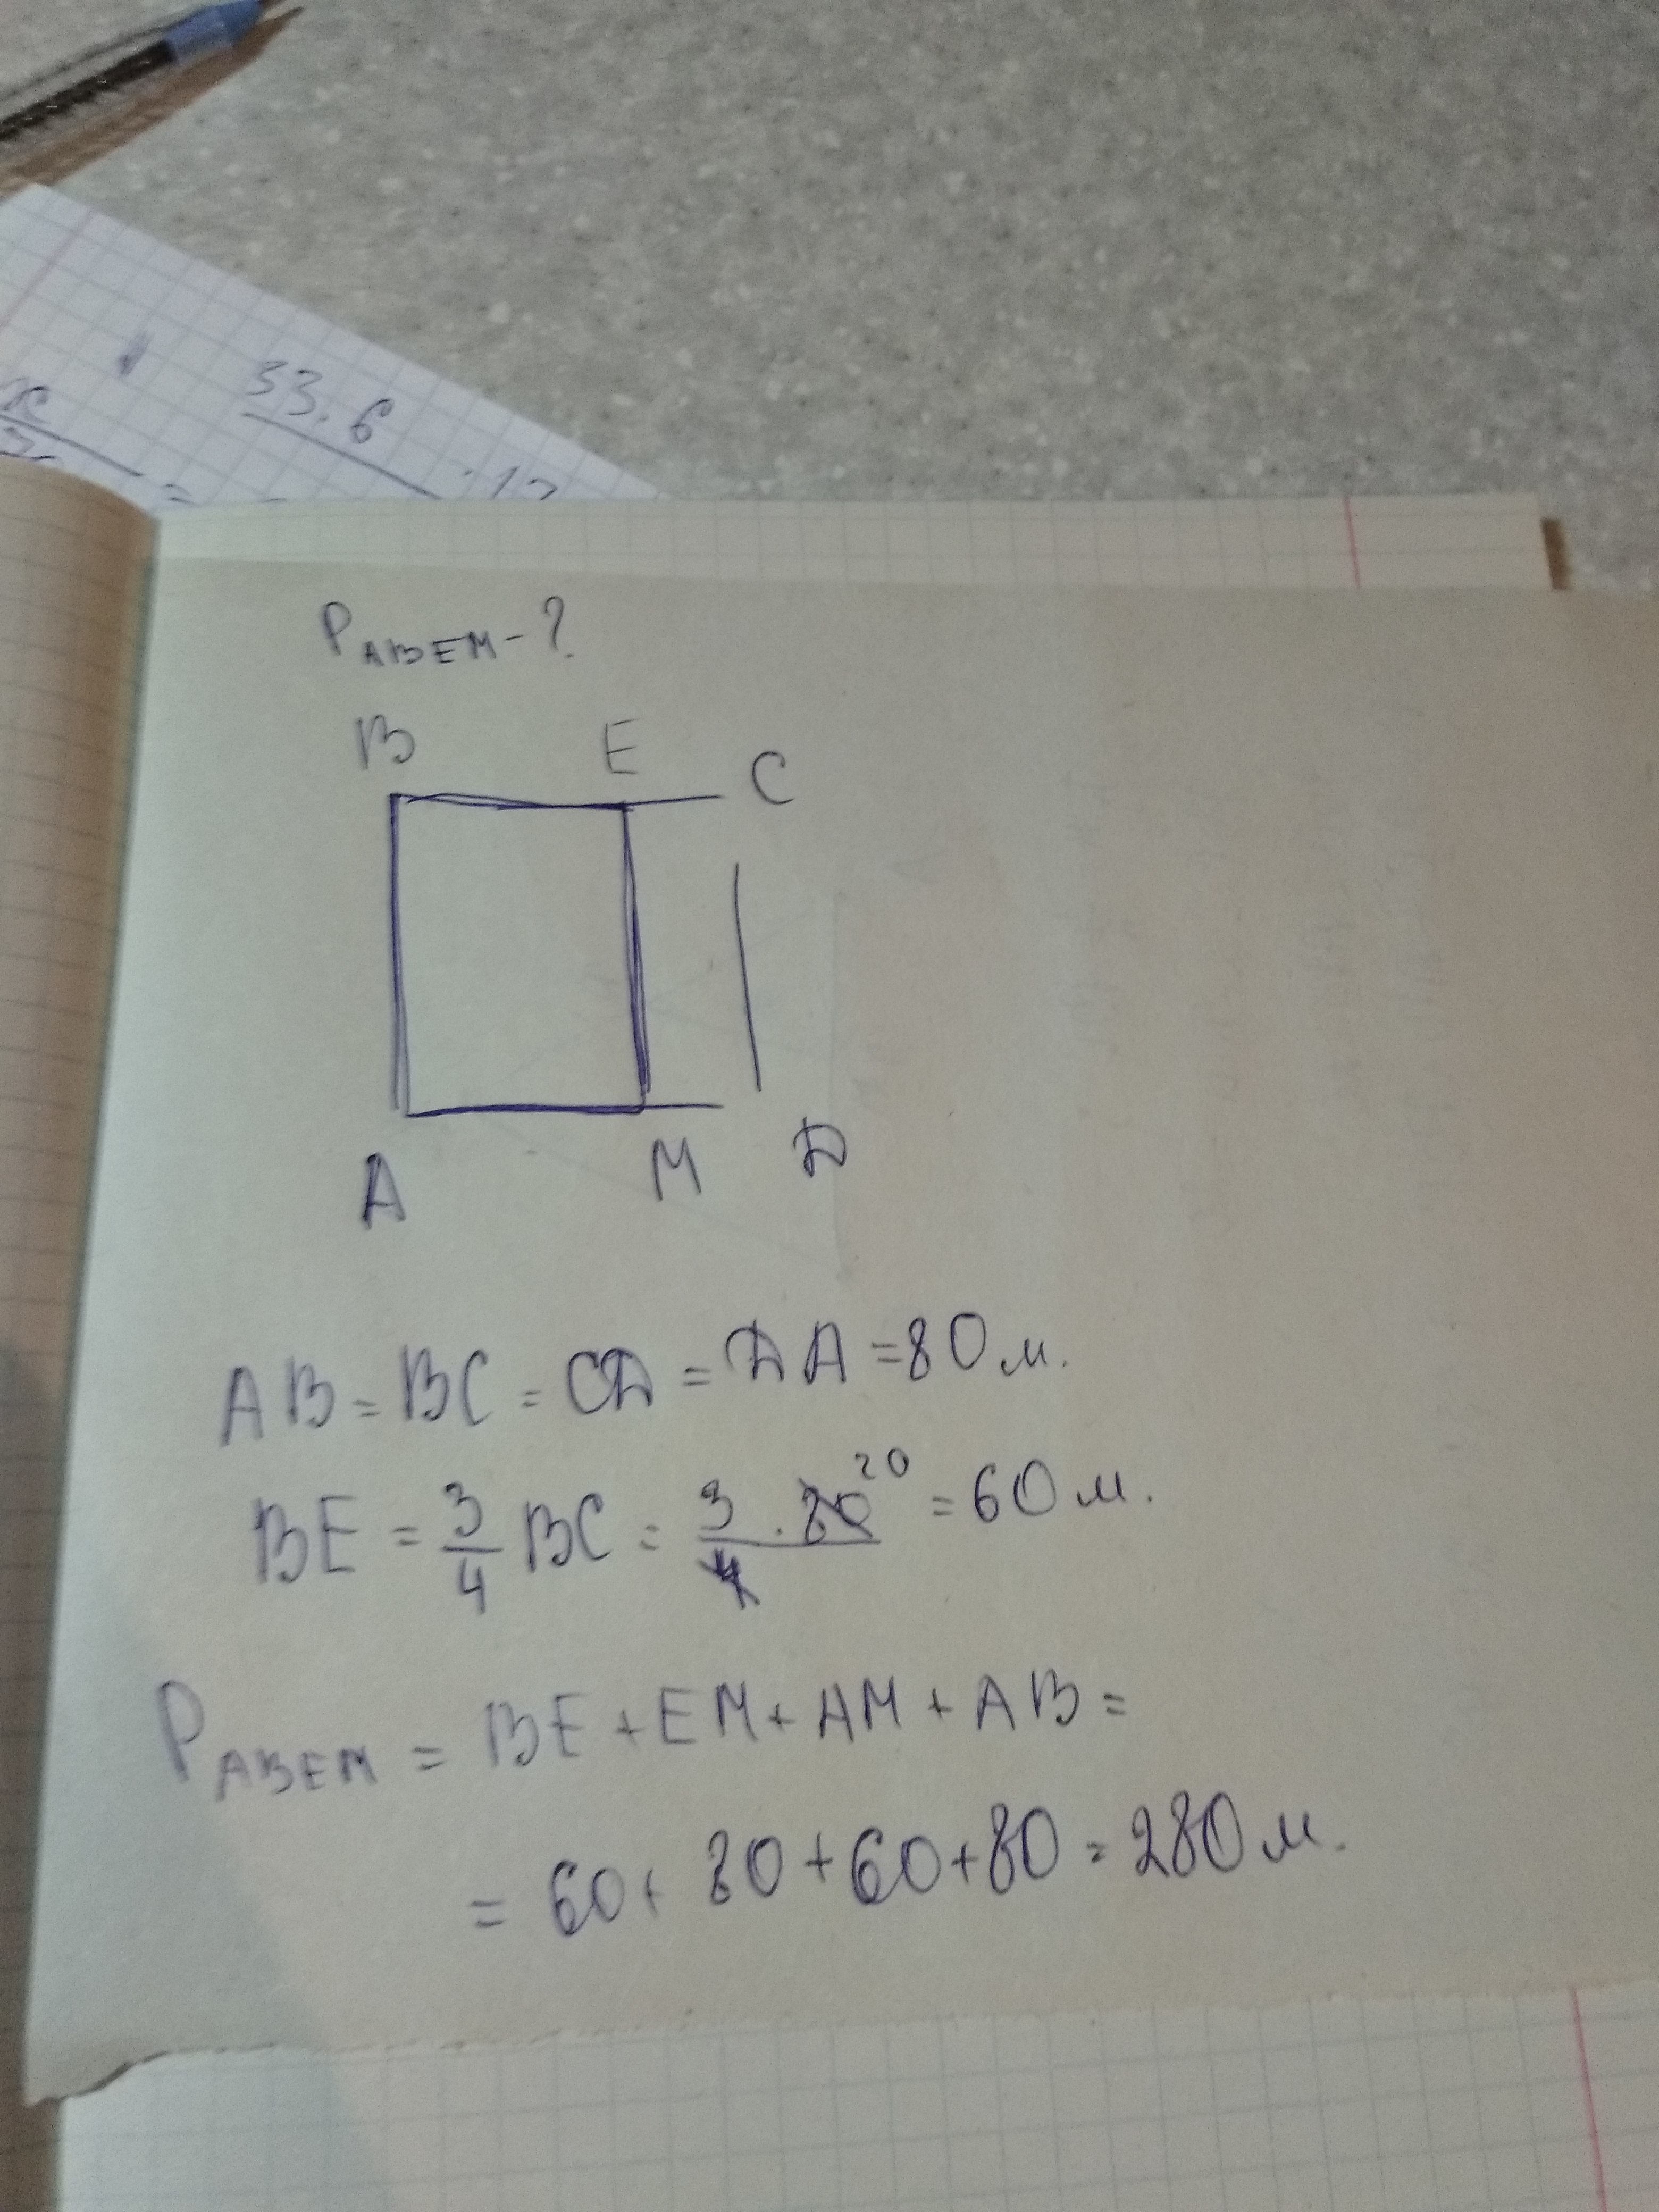 33.6
P ABEM - ?
B E C
A M D
AB = BC = CD = DA = 80 м.
BE = 3/4 BC = 3 · 80 20 / 4 = 60 м.
P ABEM = BE + EM + AM + AB =
= 60 + 80 + 60 + 80 = 280 м.